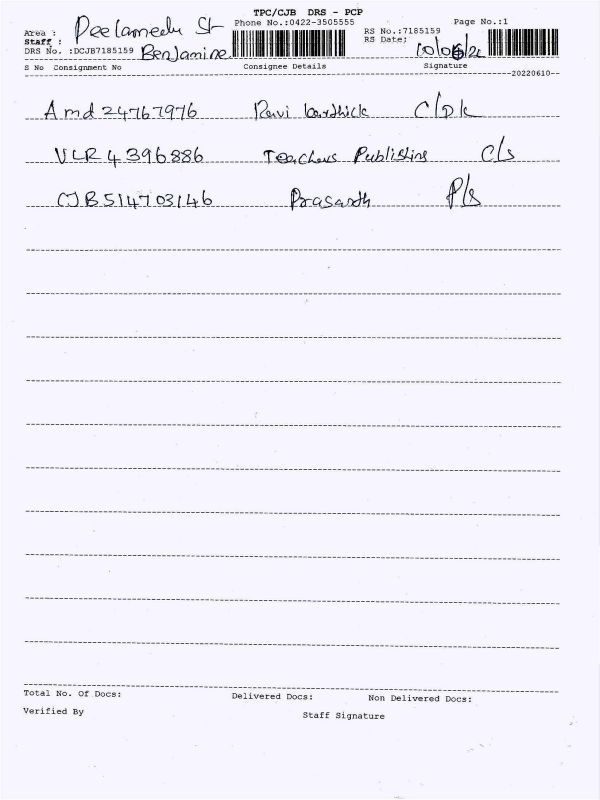 TPC/CJB DRS - PCP
Phone No.:0422-3505555 Page No.:1
Area : Peelamedu St
RS No.:7185159
Staff : Benjamine
RS Date; 10/06/22
DRS No. :DCJB7185159
S No Consignment No Consignee Details Signature
20220610
Amd 24767976 Ravi karthick C/DK
VLR 4396886 Teachers Publishing C/s
CJB 514703146 Prasanth P/s
Total No. Of Docs: Delivered Docs: Non Delivered Docs:
Verified By Staff Signature